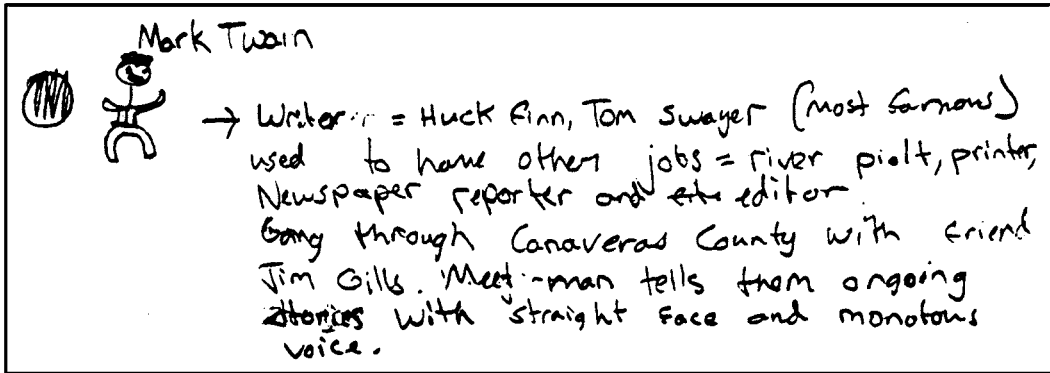 Mark Twain
→ Writer = Huck Finn, Tom Swayer (most famous)
used to have other jobs = river piolt, printer,
Newspaper reporter and editor
Gong through Canaveras County with friend
Jim Gills. Meet man tells them ongoing
stories with straight face and monotous
voice.